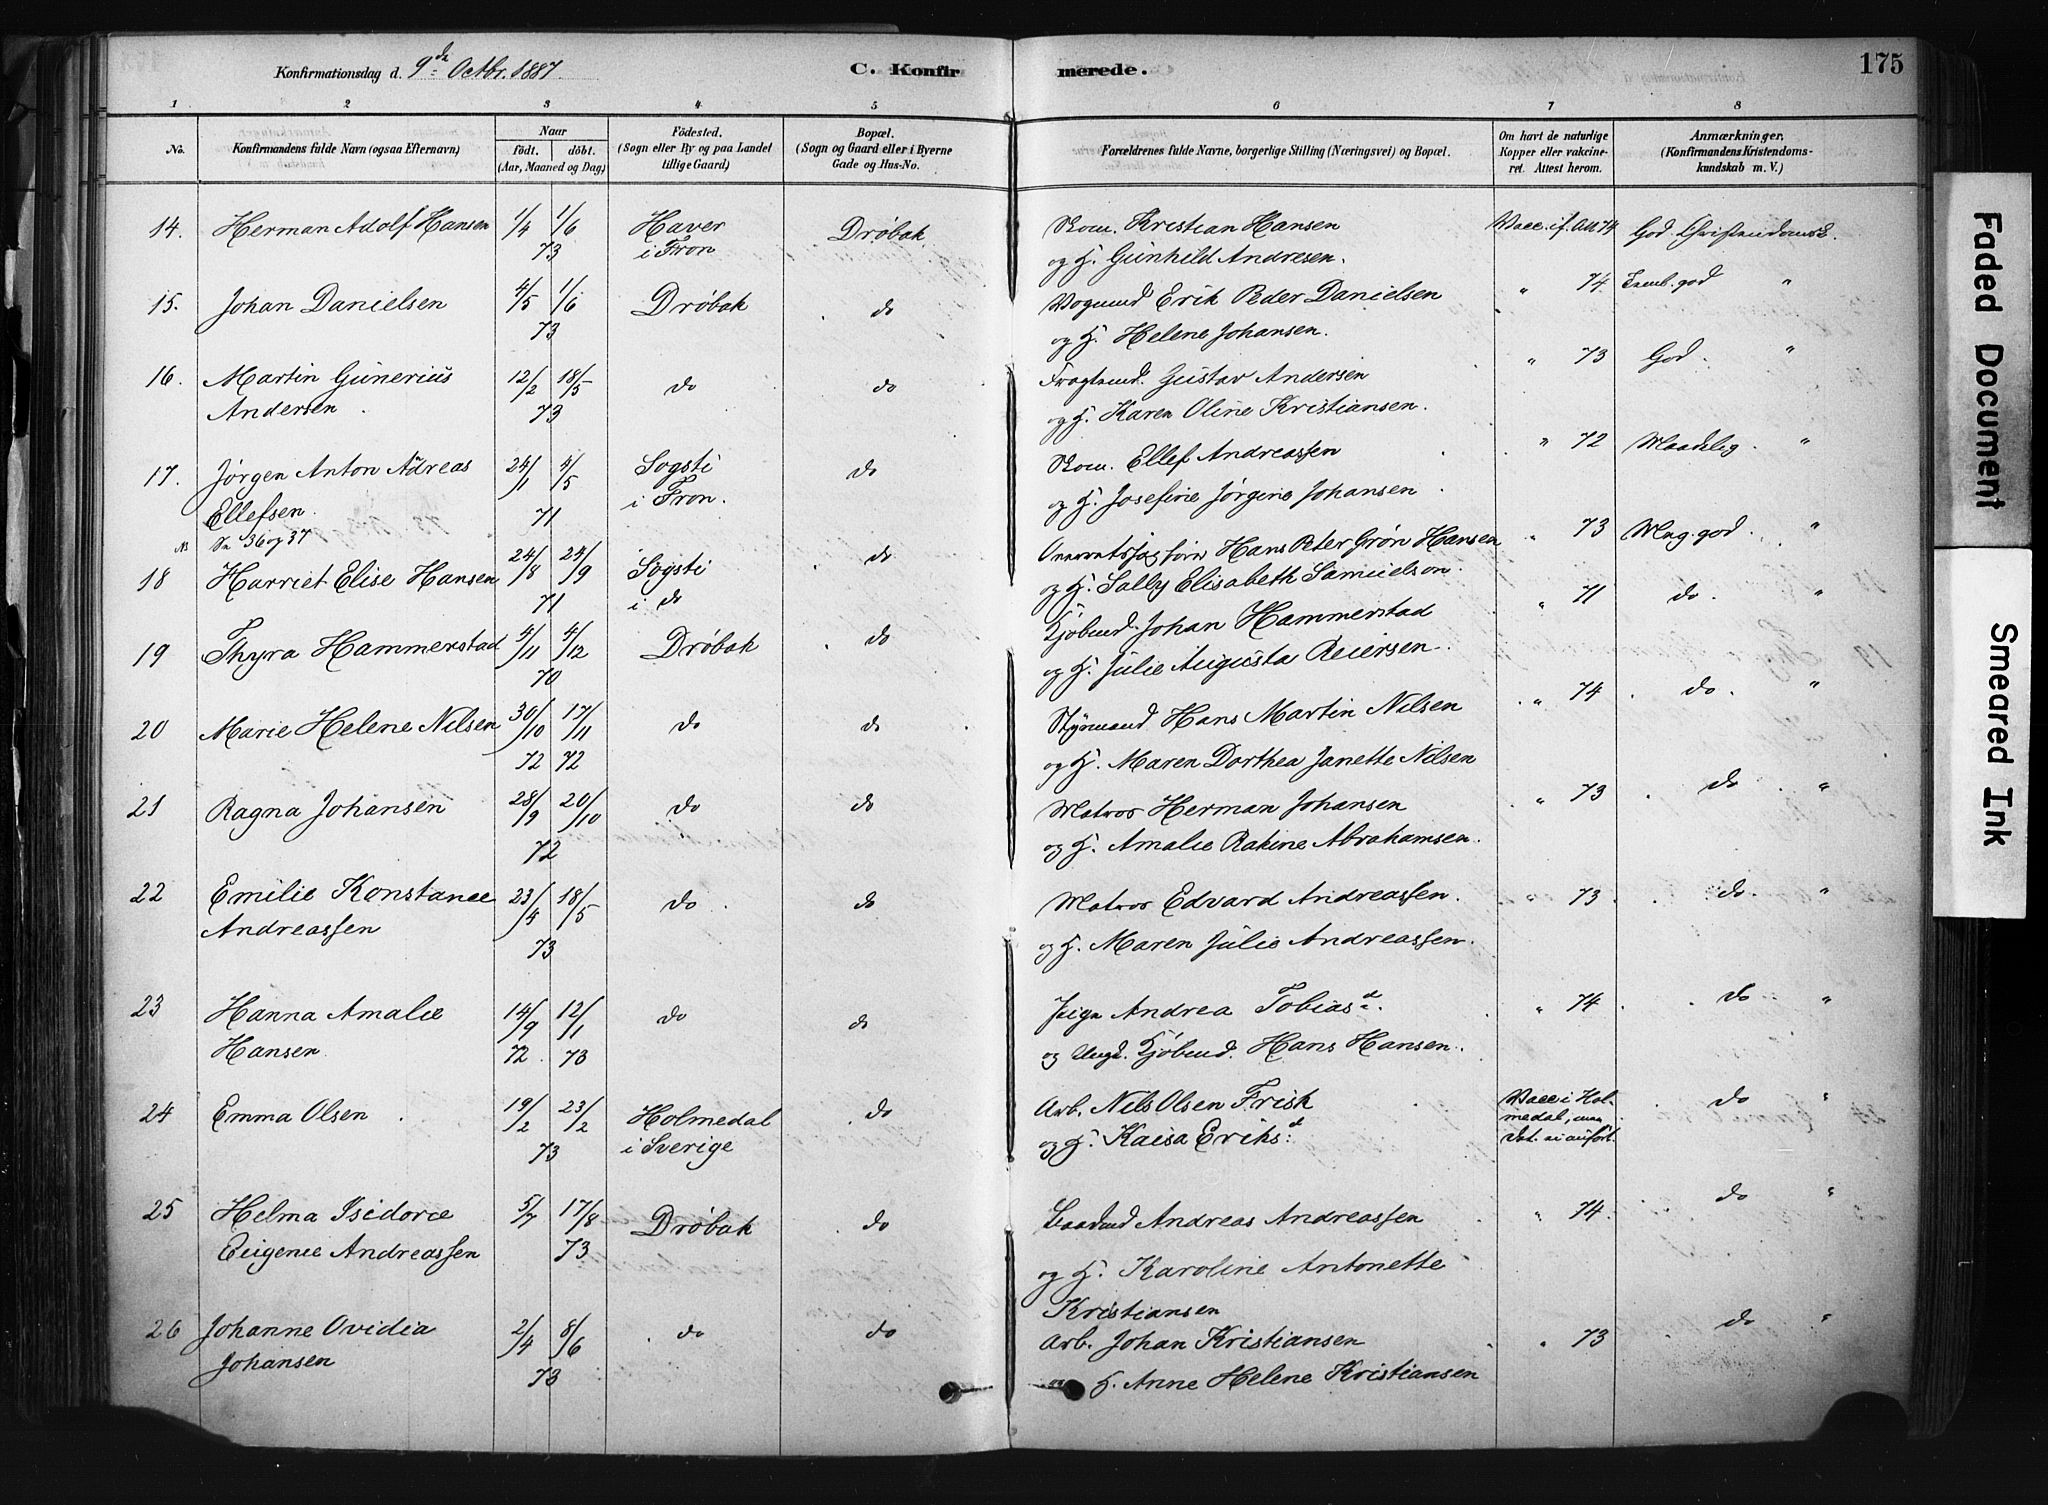 Konfirmationsdag d. 9de Octbr. 1887. C. Konfirmerede. 175
1 2 3 4 5 6 7 8
No. Konfirmandens fulde Navn (ogsaa Efternavn) Naar födt. döbt. (Aar, Maaned og Dag) Födested. (Sogn eller By og paa Landet tillige Gaard) Bopæl. (Sogn og Gaard eller i Byerne Gade og Hus-No. Forældrenes fulde Navne, borgerlige Stilling (Næringsvei) og Bopæl. Om havt de naturlige Kopper eller vakcineret. Attest herom. Anmærkninger. (Konfirmandens Kristendomskundskab m. V.)
14. Herman Adolf Hansen 1/4 1/6 Haver Drøbak Skom. Kristian Hansen Vacc. if. Att 74 God Christendomsk.
73 i Fron og H. Gunhild Andresen.
15. Johan Danielsen 4/5 1/6 Drøbak do Vognmd Erik Peder Danielsen " 74 Temb. god "
73 og H. Helene Johansen.
16. Martin Gunerius 12/2 18/5 do do Fragtemd. Gustav Andersen " 73 God. "
Andersen. 73 og H. Karen Oline Kristiansen.
17. Jørgen Anton Adreas 24/1 4/5 Sogsti do Skom. Ellef Andreassen " 72 Maadelig. "
Ellefsen. 71 i Fron. og H. Josefine Jørgine Johansen
NB Se 36 og 37
18 Harriet Elise Hansen 24/8 24/9 Sogsti do Hans Peter Grøn Hansen " 73 Meg. god. "
71 i do og H. Sally Elisabeth Samuelson.
19 Thyra Hammerstad 4/11 4/12 Drøbak do Kjøbmd. Johan Hammerstad " 71 do. "
70 og H. Julie Augusta Reiersen.
20 Marie Helene Nilsen 30/10 17/11 do do Styrmand Hans Martin Nilsen " 74 do. "
72 72 og H. Maren Dorthea Janette Nilsen
21 Ragna Johansen 28/9 20/10 do do Matros Herman Johansen " 73 do "
72 og H. Amalie Rakine Abrahamsen.
22 Emilie Konstance 23/4 18/5 do do Matros Edvard Andreassen. " 73 do. "
Andreassen 73 og H. Maren Julie Andreassen.
23 Hanna Amalie 14/9 12/1 do do Pige Andrea Tobiasd. " 74 do "
Hansen. 72. 73 og Ungk. Kjøbmd. Hans Hansen.
24 Emma Olsen 19/2 23/2 Holmedal do Arb. Nils Olsen Frisk Vacc i Holmedal, men Dat. ei anført. do "
73 i Sverige og H. Kaisa Eriksd
25 Helma Isidore 5/7 17/8 Drøbak do Baadmd Andreas Andreassen " 74. do "
Eugenie Andreassen 73 og H. Karoline Antonette
Kristiansen
26 Johanne Ovidia 2/4 8/6 do do Arb. Johan Kristiansen " 73 do "
Johansen 73 og H. Anne Helene Kristiansen
Faded Document
Smeared Ink